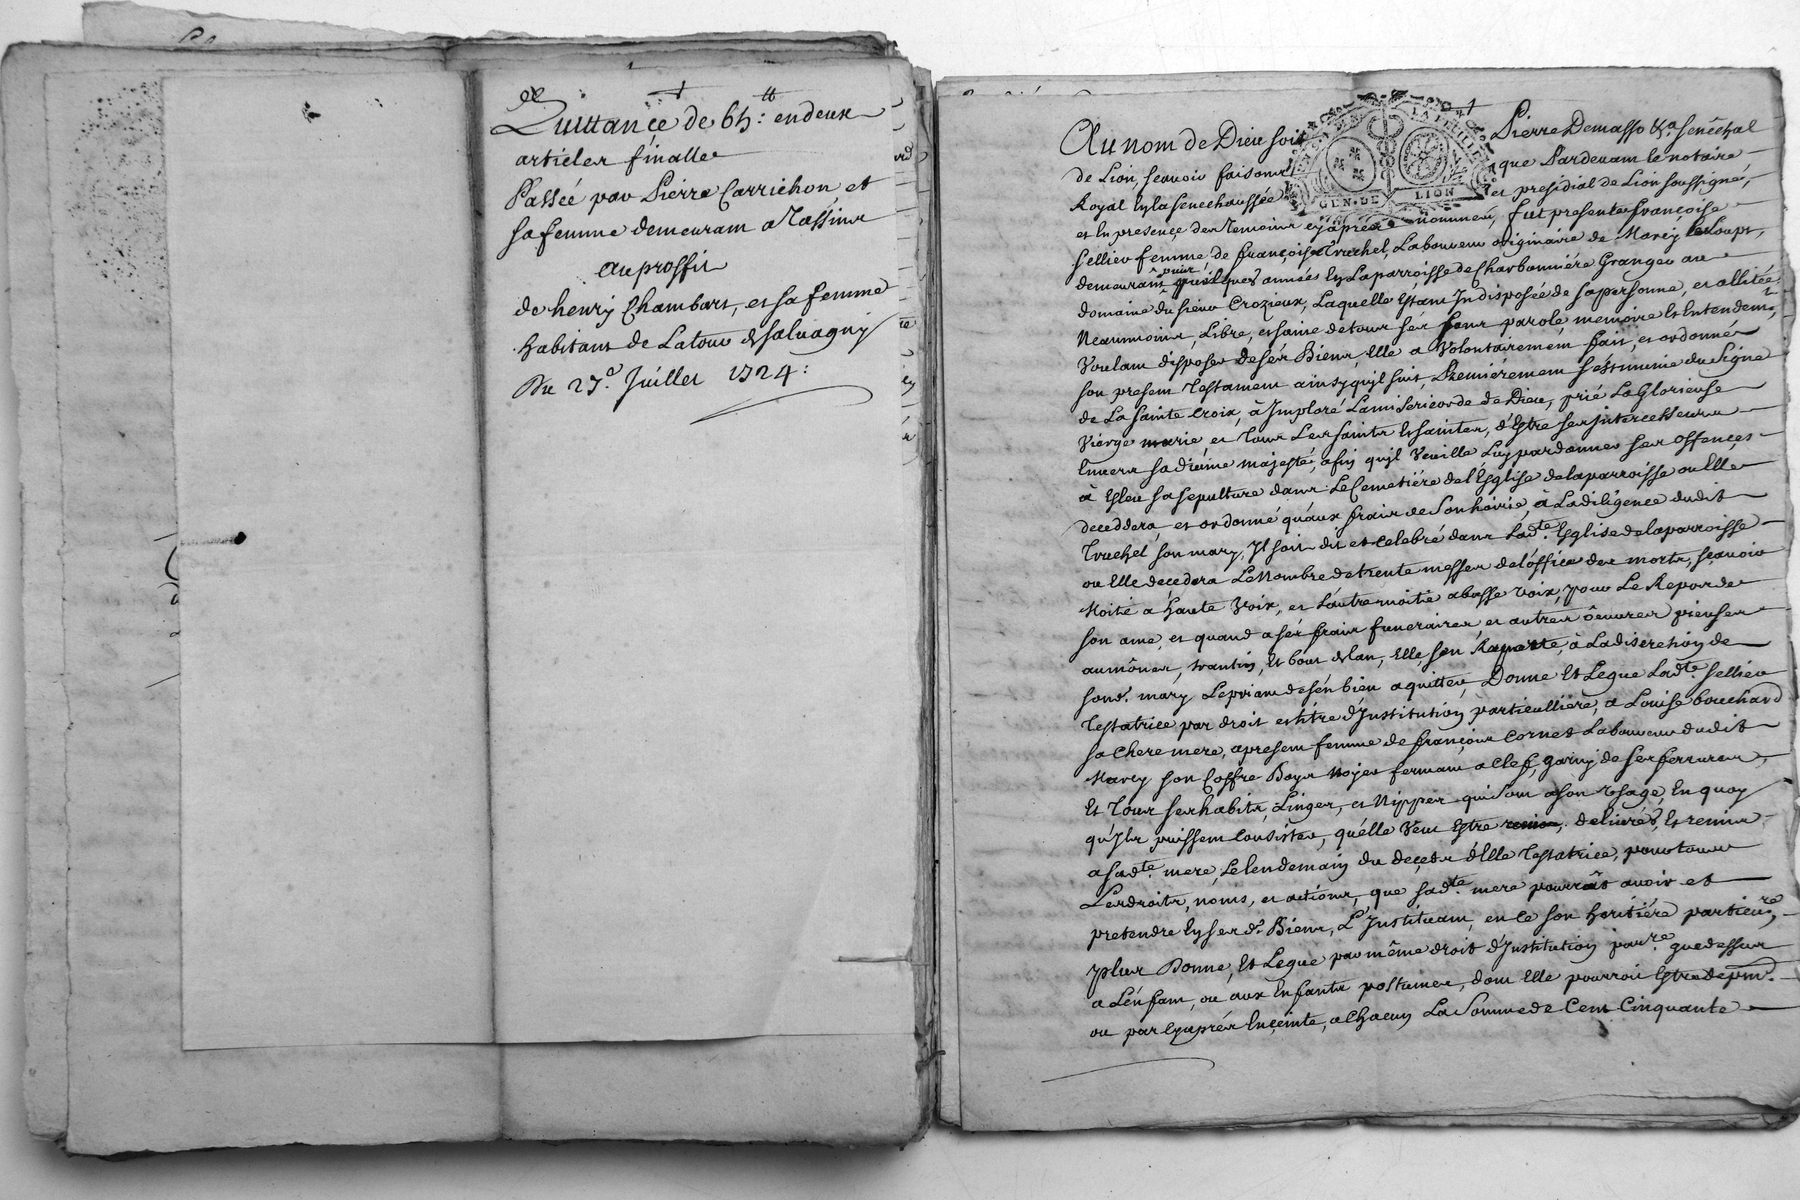 Quittance de 65ᵗᵗ: en deux
articles finalle
Passée par Pierre Carrichon et
sa femme demeurant a Tassins
au proffit
de henry Chambart, et sa femme
habitans de Latour de salvagny
Du 27.ᵉ Juillet 1724:
Au nom de Dieu soit Pierre Demasso &ᵃ senéchal
de Lion, scavoir faisons que Pardevant le notaire
Royal En la senechaussée et presidial de Lion soussigné,
et En presence des Temoins cy après nommés, fut presente françoise
sellier femme de françois Truchet, Laboureur originaire de Marcy les Loups,
demeurant dépuis quelques années En La parroisse de Charbonniére Granger au
domaine du sieur Crozieux, Laquelle Estant Indisposée de sa personne, et allitée
Neanmoins, Libre, et saine de tous ses sens parolé memoire Et Entendemᵗ,
Voulant disposer de sés Biens, Elle a Volontairement fait, et ordonné
son present Testament ainsy qu'jl suit, Premiérement s'est munie du Signe
de La sainte Croix, à Imploré La misericorde de Dieu, prié La Glorieuse
Viérge marie et Tous Les saints Et saintes, d'Estre ses jntercesseurs
Envers sa divine majesté, afin qu'jl Veuille Luy pardonner ses offences
à Esleu sa sepulture dans Le Cemetiére de l'Église de la parroisse ou Elle
deceddera, et ordonné qu'aux frais de Son hoirie, à La diligence dudit
Truchet son mary, Jl soit dit et celebré dans Ladᵗᵉ. Eglise de la parroisse
ou Elle decedera Le Nombre de trente messes de l'óffice des morts, scavoir
Moitié à haute Voix, et L'autre moitié a basse voix, pour Le Repos de
son ame, et quand a sés frais funeraires, et autres oeuvres pieuses
aumônes, trantin, Et bout de l'an, Elle s'en raporte, à La discretion de
sond. mary Le priant de s'én bien aquitter, Donne Et Legue Ladᵗᵉ. sellier
Testatrice par droit et titre d'Institution particulliére, a Louise bouchard
sa chere mere, a present femme de françois Cornet Laboureur dudit
Marcy son Coffre Boys Noyer fermant a Clef, garny de ses ferrures,
Et Tous ses habits, Linges, et Nippes qui sont a son Usage, En quoy
qu'Jls puissent Consister, qu'élle Veut Estre delivrés, Et remis
a sadᵗᵉ. mere, Le lendemain du decéds d'Elle Testatrice, pour tous
Les droits, noms, et actions, que sadᵗᵉ. mere pourroit avoir et
pretendre En ses d. Biens, L'Jnstituant, en ce son héritiére particuᵉʳᵉ,
Plus Donne, Et Legue par même droit d'Institution parᵉʳᵉ que dessus
a L'énfant, ou aux Enfants postumes, dont Elle pourroit Estre de pntᵗ.
ou par Cy aprés Enceinte, a Chacun La Somme de Cent Cinquante
GEN. DE LION